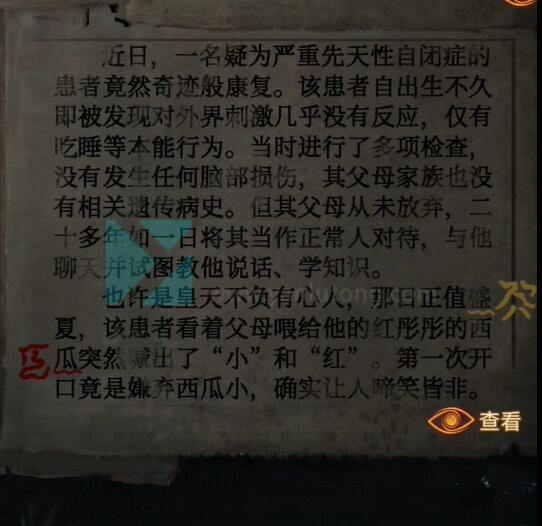 近日，一名疑为严重先天性自闭症的
患者竟然奇迹般康复。该患者自出生不久
即被发现对外界刺激几乎没有反应，仅有
吃睡等本能行为。当时进行了多项检查，
没有发生任何脑部损伤，其父母家族也没
有相关遗传病史。但其父母从未放弃，二
十多年如一日将其当作正常人对待，与他
聊天并试图教他说话、学知识。
也许是皇天不负有心人，那日正值盛
夏，该患者看着父母喂给他的红彤彤的西
瓜突然喊出了“小”和“红”。第一次开
口竟是嫌弃西瓜小，确实让人啼笑皆非。
查看